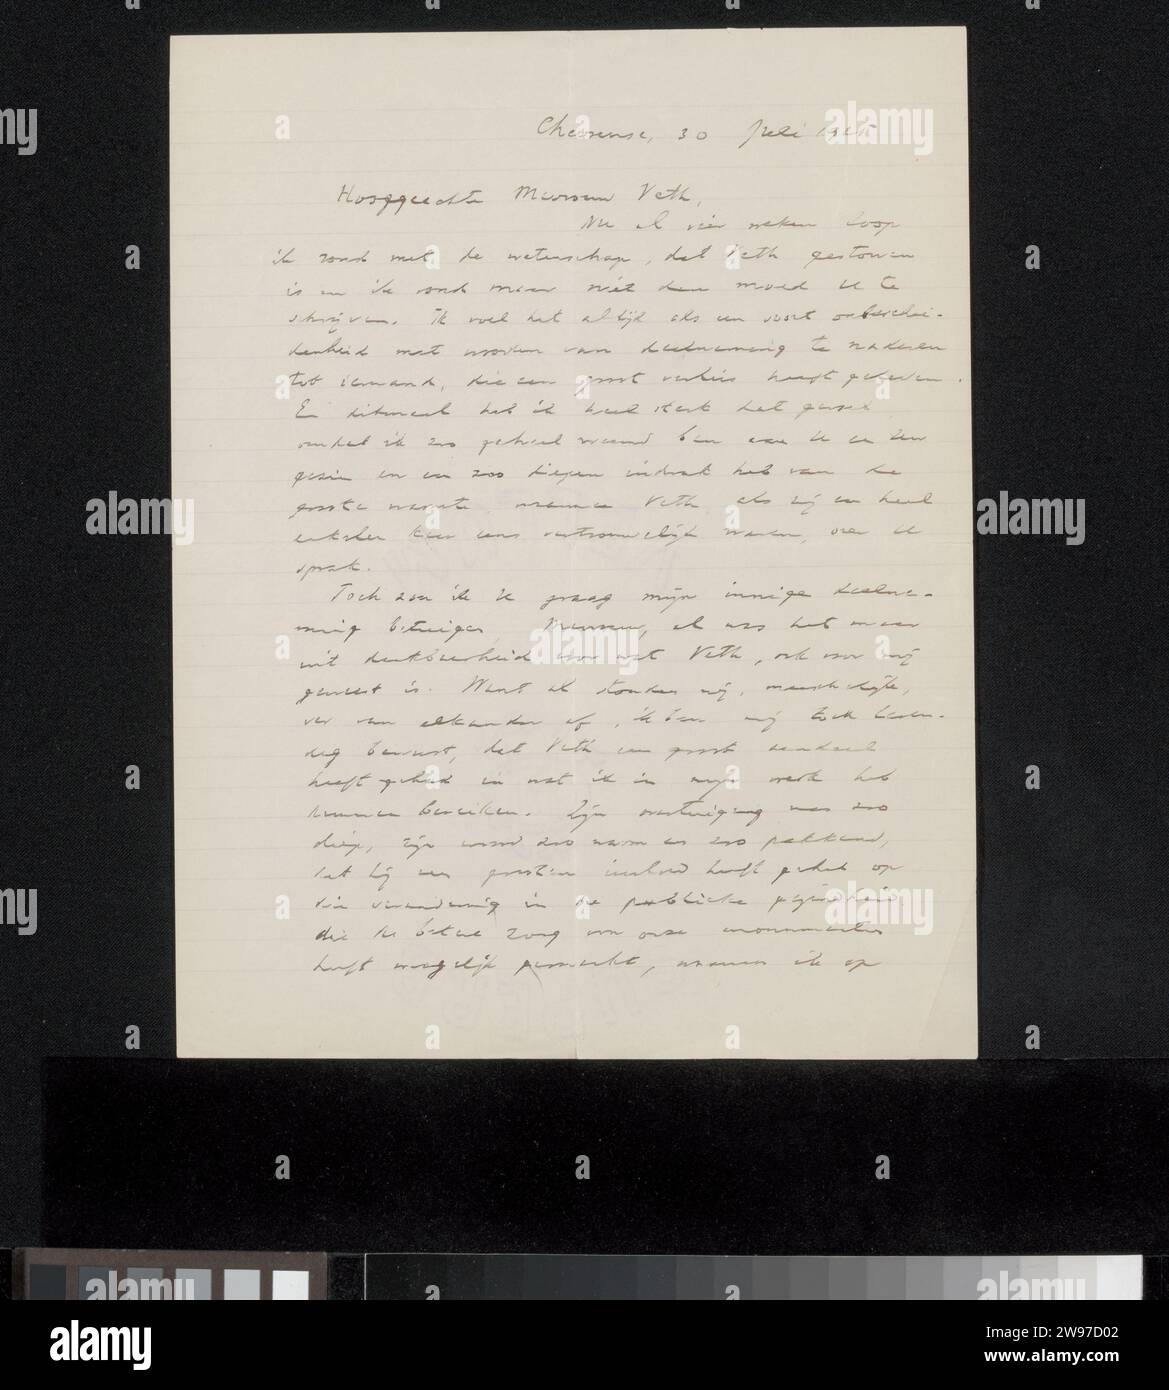 30 Juli 1925
Hooggeachte Mevrouw Veth,
Nu al vier weken loop
ik rond met de wetenschap, dat Veth gestorven
is en ik vond maar niet den moed U te
schrijven. Ik voel het altijd als een soort onbeschei-
denheid met woorden van deelneming te naderen
tot iemand, die een groot verlies heeft geleden.
En ditmaal heb ik heel sterk dat gevoel
omdat ik zoo geheel vreemd ben aan U en Uw
gezin en een zoo diepen indruk heb van de
groote warmte waarmee Veth, als wij een heel
enkelen keer eens vertrouwelijk waren, over U
sprak.
Toch zou ik U graag mijn innige deelne-
ming betuigen, Mevrouw, al was het maar
uit dankbaarheid voor wat Veth, ook voor mij
geweest is. Want al stonden wij, menschelijk,
ver van elkander af, ik ben mij toch leven-
dig bewust, dat Veth een groot aandeel
heeft gehad in wat ik in mijn werk heb
kunnen bereiken. Zijn overtuiging was zoo
diep, zijn woord zoo warm en zoo pakkend,
dat hij een grooten invloed heeft gehad op
die verandering in de publieke
die de betere zorg voor onze monumenten
heeft mogelijk gemaakt, waarin ik op
alamy
a
Image ID: 2W97D02
www.alamy.com